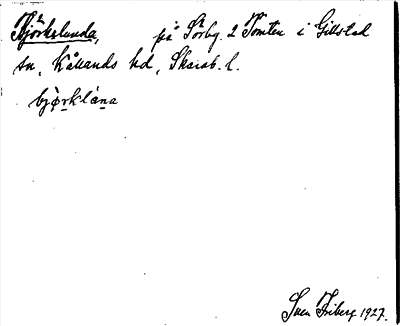 Björkelunda, på Sörby 2 Tomten i Gillstad
sn, Kållands hd, Skarab. l.
bjö̀rklúna
Sven Friberg 1927.